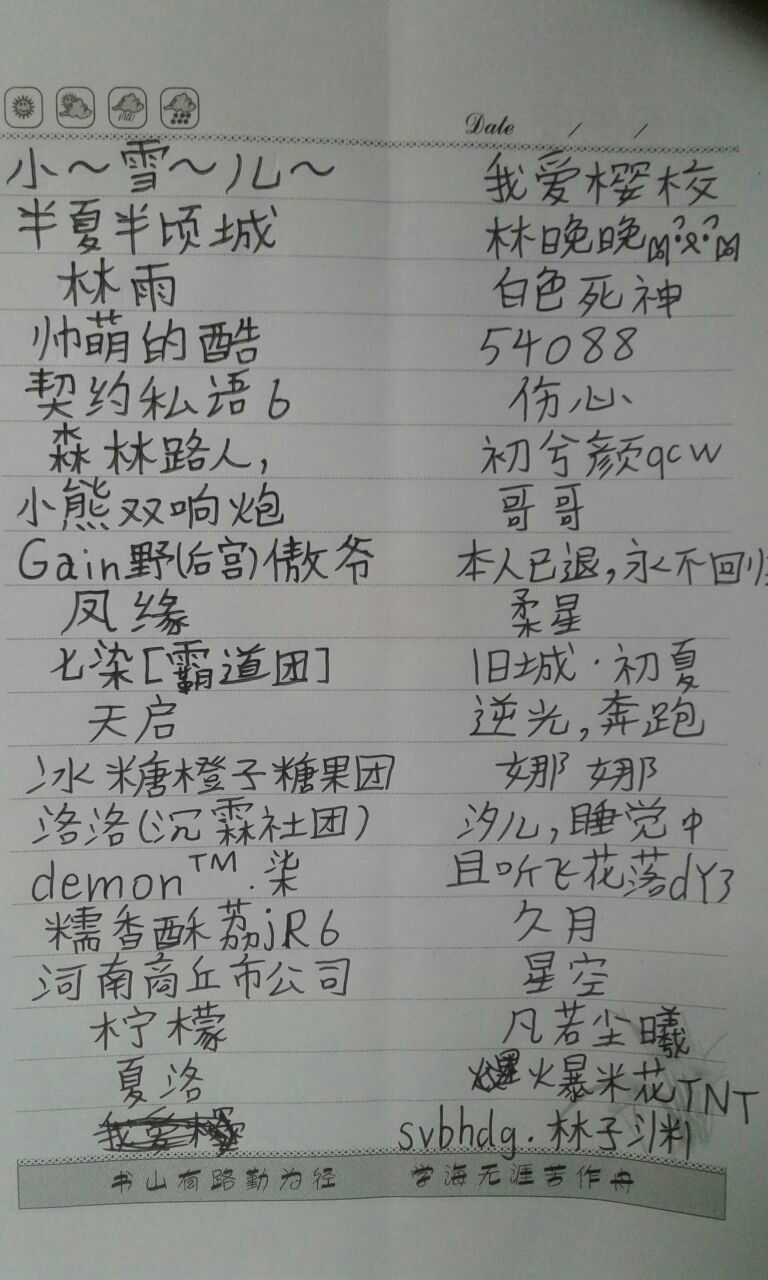 Date / /
小～雪～儿～
半夏半顷城
林雨
帅萌的酷
契约私语6
森林路人,
小熊双响炮
Gain野(后宫)傲爷
凤缘
七染[霸道团]
天启
冰糖橙子糖果团
洛洛(沉霖社团)
demon™.柒
糯香酥荔jR6
河南商丘市公司
柠檬
夏洛
我爱樱校
林晚晚
白色死神
54088
伤心、
初兮颜qcw
哥哥
本人已退,永不回归
柔星
旧城·初夏
逆光,奔跑
娜娜
汐儿,睡觉中
且听飞花落dY3
久月
星空
凡若尘曦
爆米花TNT
svbhdg.林子渊
书山有路勤为径 学海无涯苦作舟